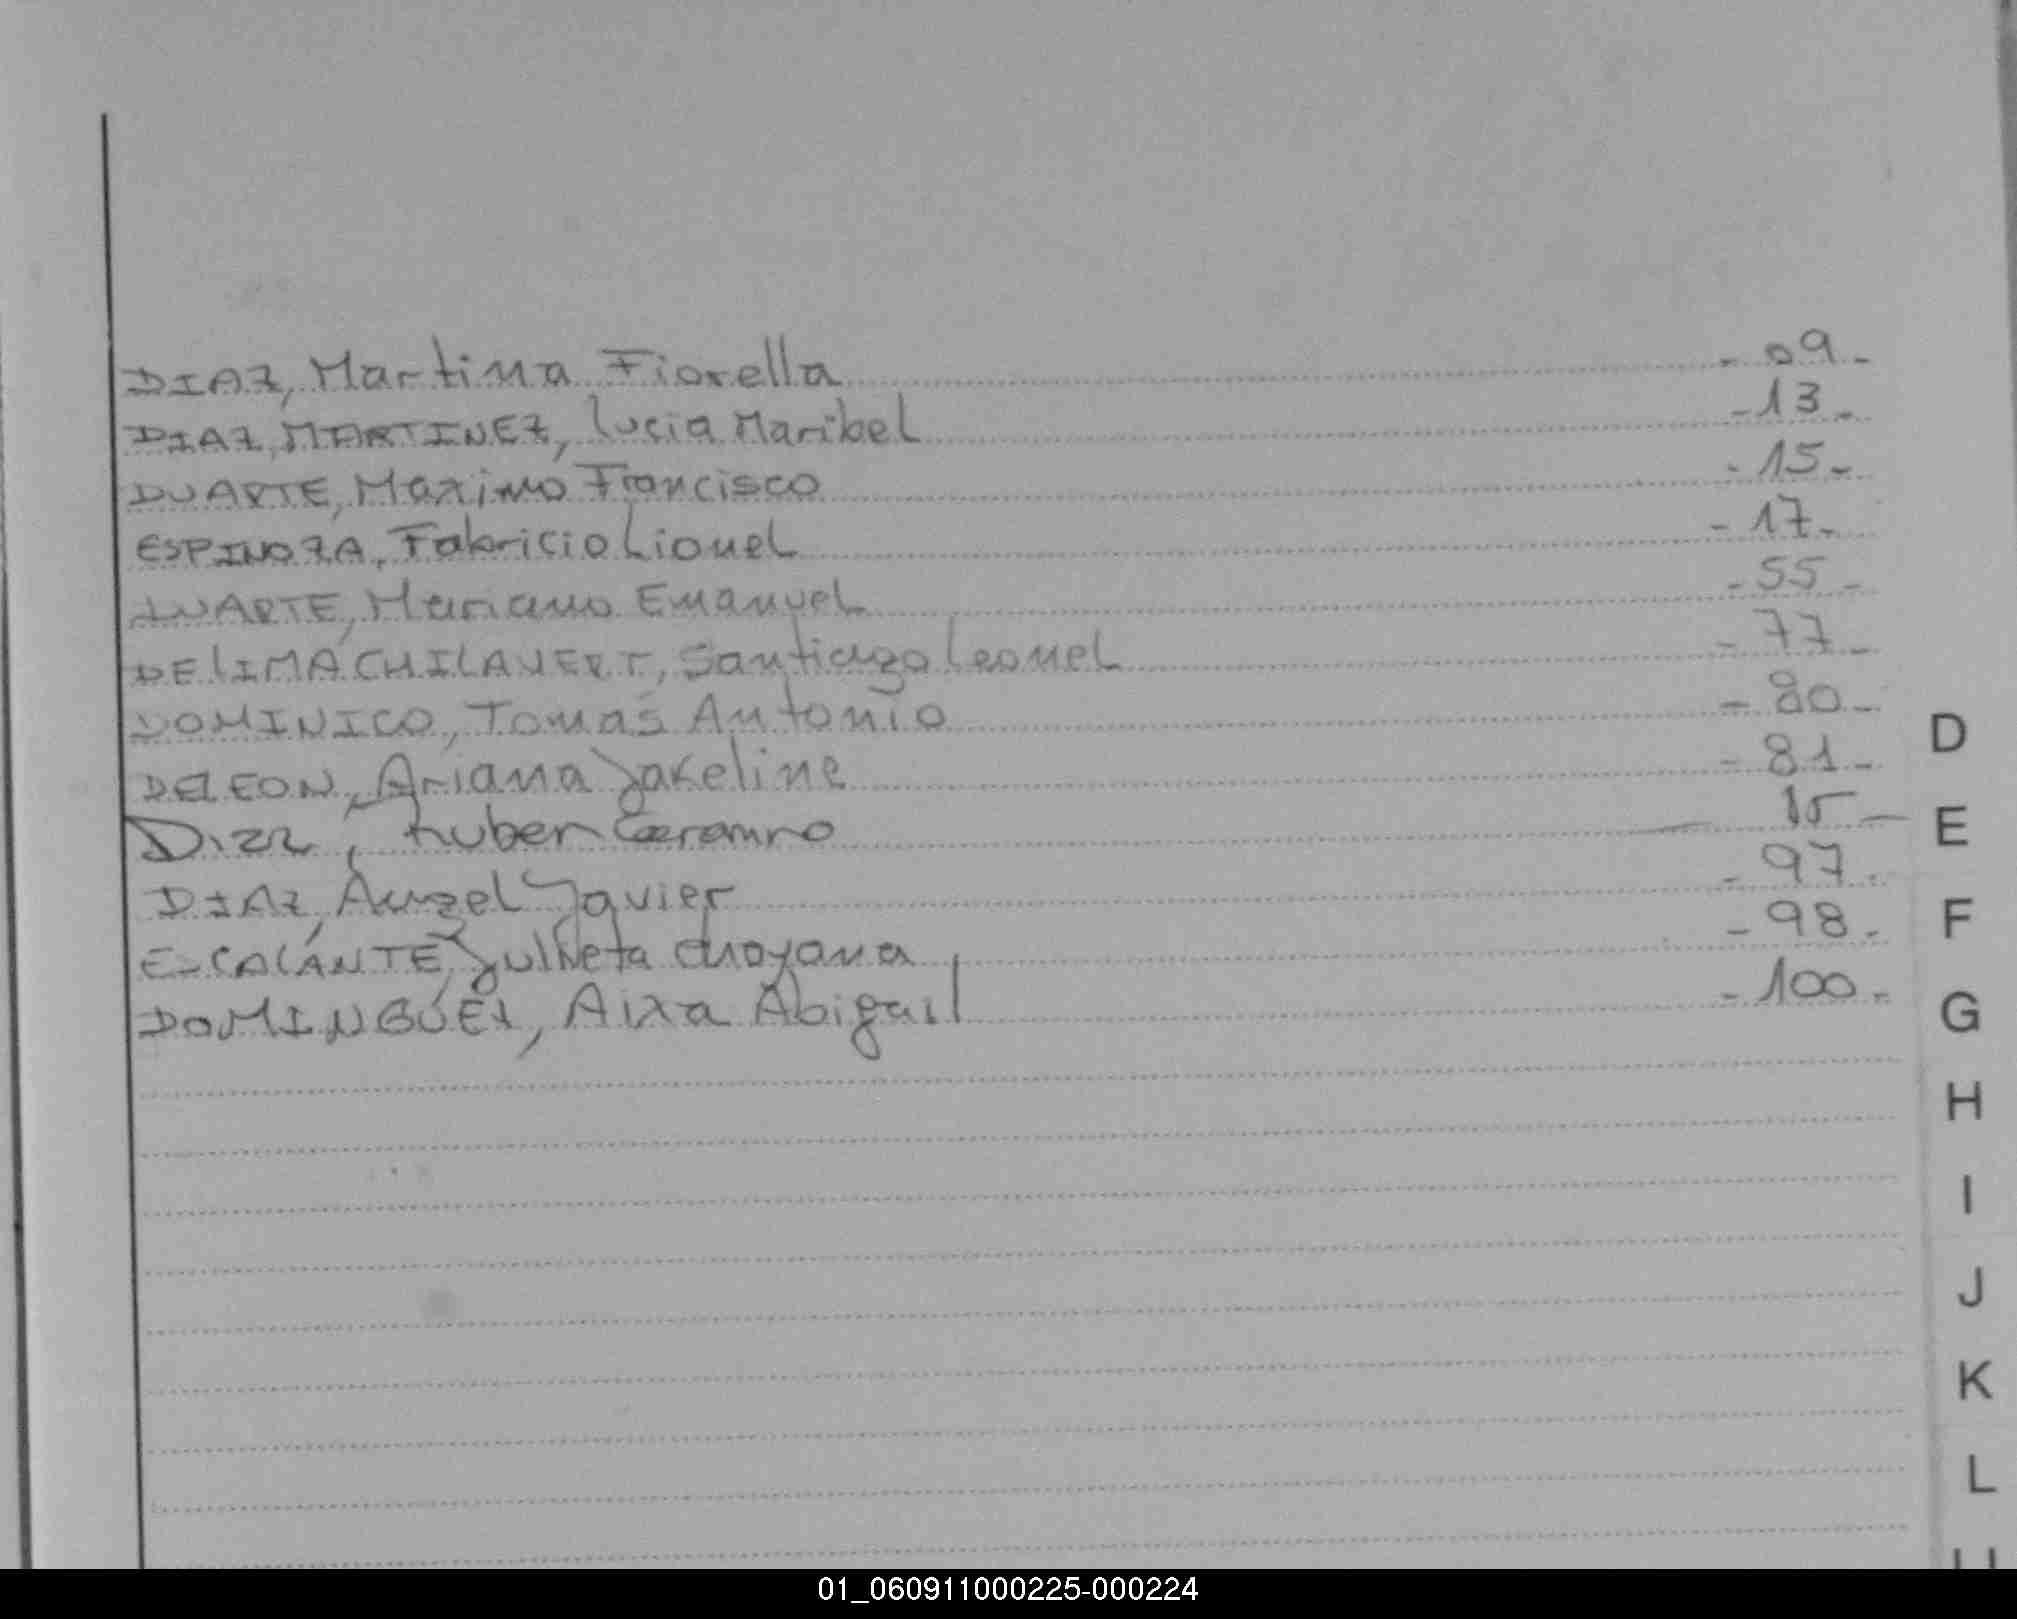 DIAZ, Martina Fiorella - 09 -
DIAZ MARTINEZ, Lucia Maribel - 13 -
DUARTE, Maximo Francisco - 15 -
ESPINOZA, Fabricio Lionel - 17 -
DUARTE, Mariano Emanuel - 55 -
DE LIMA CHILAVERT, Santiago Leonel - 77 -
DOMINICO, Tomás Antonio - 80 -
DELEON, Ariana Jakeline - 81 -
, Ruber - 85 -
DIAZ, Angel Javier - 97 -
ESCALANTE, Julieta - 98 -
DOMINGUEZ, Aixa Abigail - 100 -
D
E
F
G
H
I
J
K
L
01_060911000225-000224